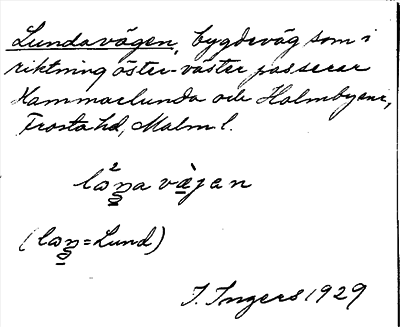 Lundavägen, bygdeväg som i
riktning öster-väster passerar
Hammarlunda och Holmbyarne,
Frosta hd, Malm l.
la²ŋa vä̀jan
(laŋ=Lund)
I. Ingers 1929